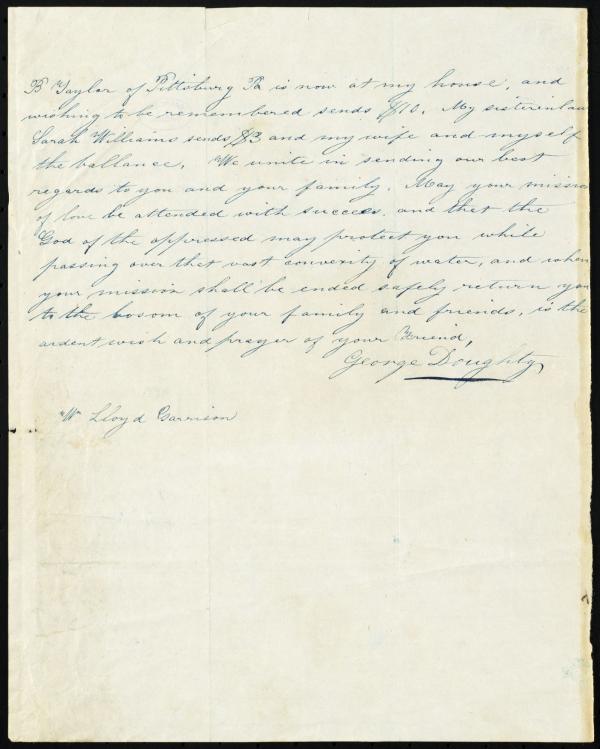 B Taylor of Pittsburg Pa is now at my house, and
wishing to be remembered sends $10. My sisterinlaw
Sarah Williams sends $3 and my wife and myself
the ballance. We unite in sending our best
regards to you and your family. May your mission
of love be attended with success, and that the
God of the oppressed may protect you while
passing over that vast convexity of water, and when
your mission shall be ended safely return you
to the bosom of your family and friends, is the
ardent wish and prayer of your Friend,
George Doughty
Wm Lloyd Garrison